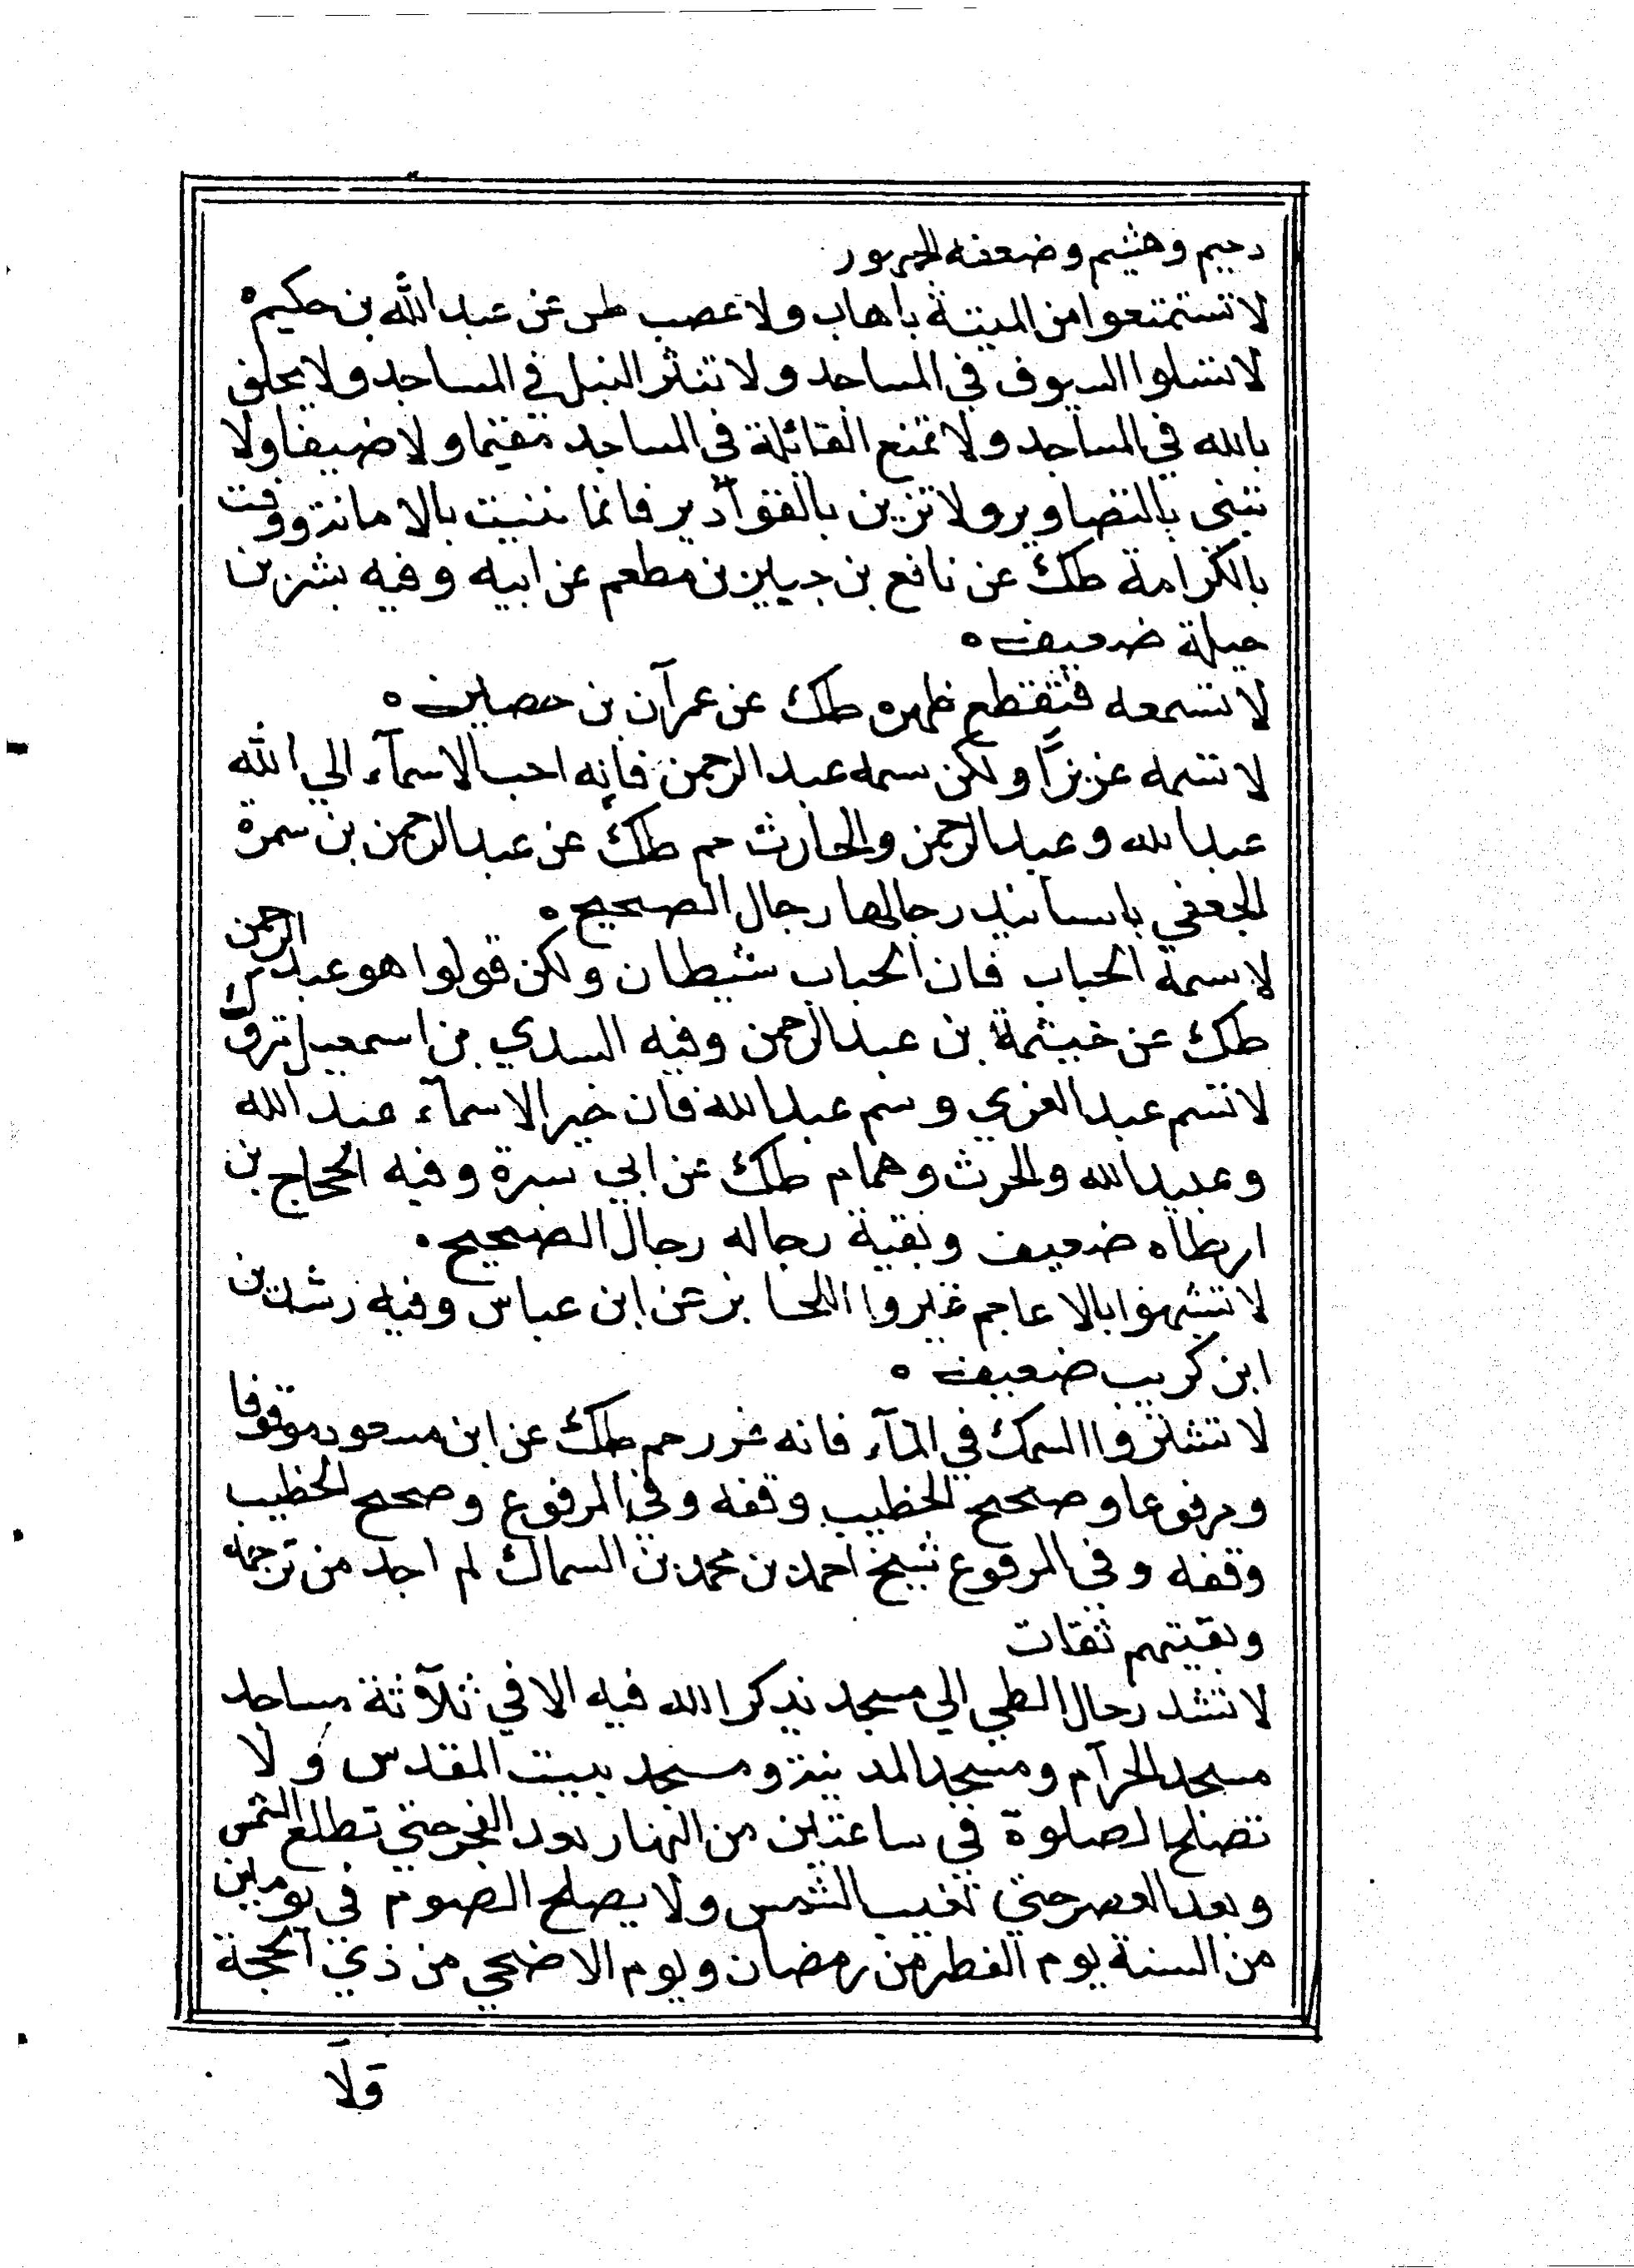 دحيم وهشيم وضعفه الجمهور
لا تستمتعوا من الميتة باهاب ولا عصب طس عن عبد الله بن حكيم ه
لا تسلوا السيوف في المساجد ولا تنثر النبل في المساجد ولا يحلف
بالله في المساجد ولا تمنع القائلة في المساجد مقيما ولا ضيفا ولا
تبنى بالتصاوير ولا تزين بالقوارير فانما بنيت بالامانة ووقت
بالكرامة طك عن نافع بن جبير بن مطعم عن ابيه وفيه بشر بن
جبلة ضعيف ه
لا تسمعه فتقطع ظهره طك عن عمران بن حصين ه
لا تسمه عزيزا ولكن سمه عبد الرحمن فانه احب الاسمآء الي الله
عبد الله وعبد الرحمن والحارث حم طك عن عبد الرحمن بن سمرة
الجعفي باسانيد رجالها رجال الصحيح ه
لا سمة الحباب فان الحباب شيطان ولكن قولوا هو عبد الرحمن
طك عن خيثمة بن عبد الرحمن وفيه السدي بن اسمعيل متروك
لا تسم عبد العزي وسم عبد الله فان خير الاسمآء عبد الله
وعبيد الله والحرث وهمام طك عن ابي سبرة وفيه الحجاج بن
ارطاه ضعيف وبقية رجاله رجال الصحيح ه
لا تشبهوا بالاعاجم غيروا اللحا بز عن ابن عباس وفيه رشدين
ابن كريب ضعيف ه
لا تشتروا السمك في المآء فانه غرر حم طك عن ابن مسعود موقوفا
ومرفوعا وصحح الخطيب وقفه وفي المرفوع وصحح الخطيب
وقفه وفي المرفوع شيخ احمد بن محمد بن السماك لم اجد من ترجمه
وبقيتهم ثقات
لا تشد رحال المطي الي مسجد يذكر الله فيه الا في ثلآثة مساجد
مسجد الحرآم ومسجد المدينة ومسجد بيت المقدس ولا
تصلح الصلوة في ساعتين من النهار بعد الفجر حتي تطلع الشمس
وبعد العصر حتي تغيب الشمس ولا يصلح الصوم في يومين
من السنة يوم الفطر من رمضان ويوم الاضحي من ذي الحجة
ولا